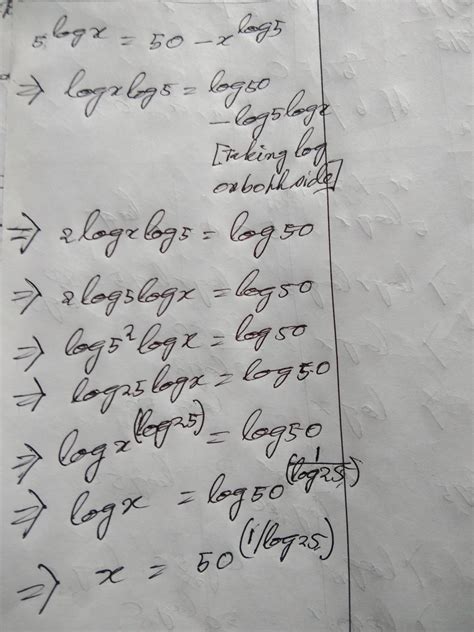 5^logx = 50 - x^log5
⇒ logxlog5 = log50
- log5logx
[Taking log
on both side]
⇒ 2logxlog5 = log50
⇒ 2log5logx = log50
⇒ log5^2 logx = log50
⇒ log25logx = log50
⇒ logx^(log25) = log50
⇒ logx = log50^(1/log25)
⇒ x = 50^(1/log25)